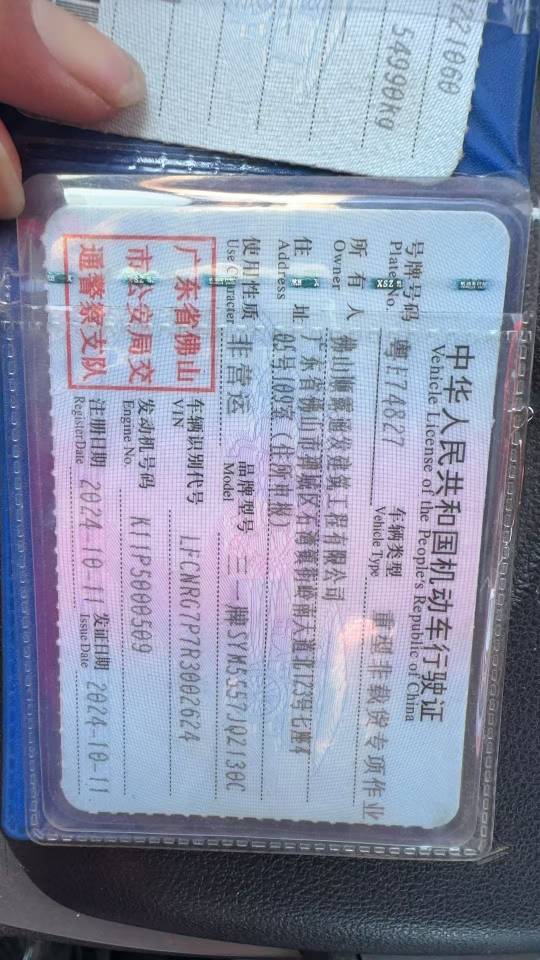 221000
54990kg
中华人民共和国机动车行驶证
Vehicle License of the People's Republic of China
号牌号码 74827 车辆类型 重型非载货专项作业
Plate No. Vehicle Type
所有人 佛山顺露通发建筑工程有限公司
Owner
住址 广东省佛山市禅城区石湾镇街岭南大道北123号七座4
Address 05号109室(住所申报)
使用性质 非营运 品牌型号 三一牌SYM5557JQZ130C
Use Character Model
广东省佛山
市公安局交
通警察支队
车辆识别代号 LFCNRG7P7R3002624
VIN
发动机号码 K11P5000509
Engine No.
注册日期 2024-10-11 发证日期 2024-10-11
Register Date Issue Date